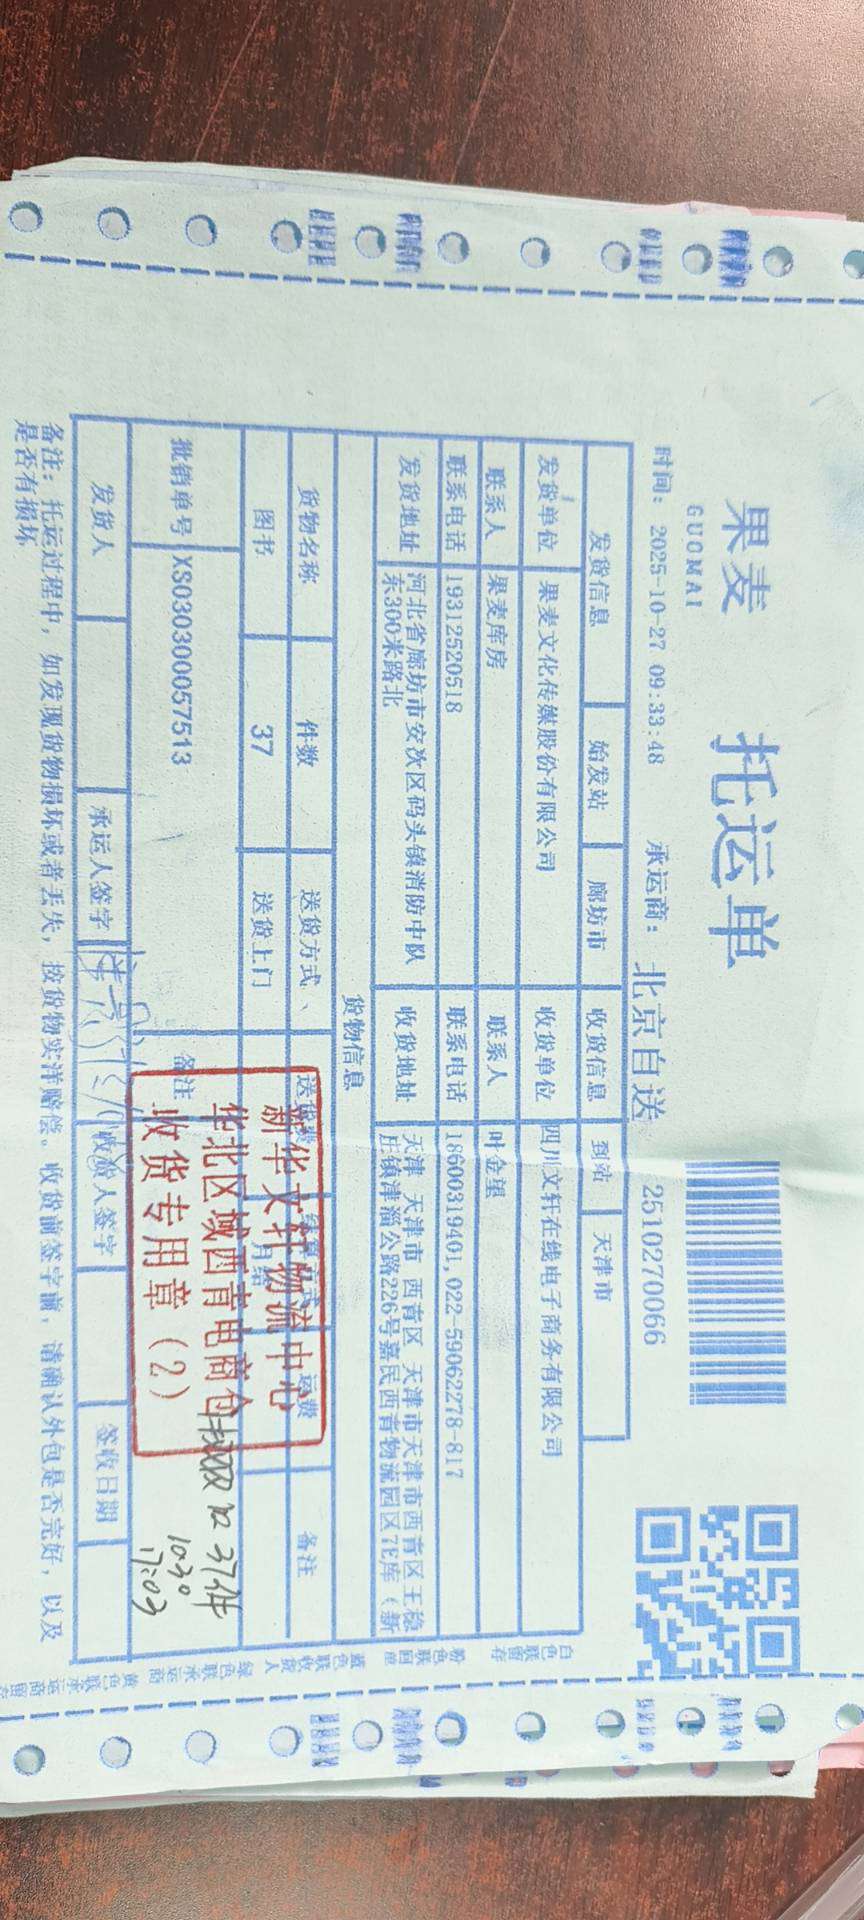 果麦 托运单
GUOMAI
时间: 2025-10-27 09:33:48 承运商: 北京自送 2510270066
发货信息 始发站 廊坊市 收货信息 到站 天津市
发货单位 果麦文化传媒股份有限公司 收货单位 四川文轩在线电子商务有限公司
联系人 果麦库房 联系人 叶金望
联系电话 19312520518 联系电话 18600319401,022-59062278-817
发货地址 河北省廊坊市安次区码头镇消防中队东300米路北 收货地址 天津 天津市 西青区 天津市天津市西青区王稳庄镇津淄公路226号嘉民西青物流园区7E库(新
货物信息
货物名称 件数 送货方式、 送货费 结算方式 运费 备注
图书 37 送货上门 月结
批销单号 XS030300057513 备注
新华文轩物流中心
华北区域西青电商仓
收货专用章(2)
37件
10.30
17:03
发货人 承运人签字 收货人签字 签收日期
备注: 托运过程中, 如发现货物损坏或者丢失, 按货物实洋赔偿。收货前签字前, 请确认外包是否完好, 以及
是否有损坏
白色联留存
粉色联回单
蓝色联收货人
绿色联承运商
黄色联承运商留存